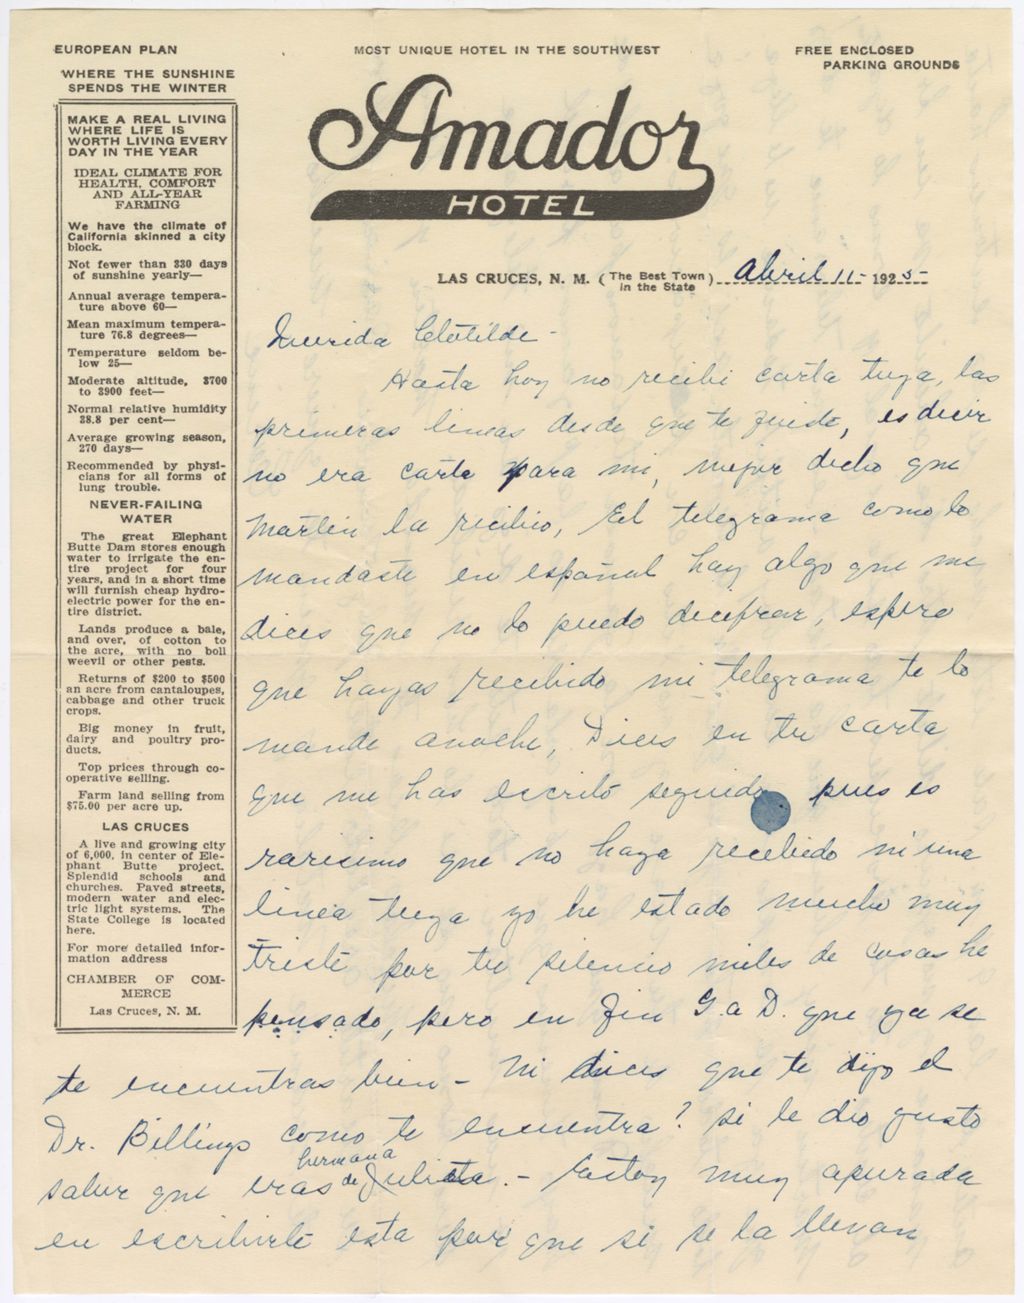 EUROPEAN PLAN
MOST UNIQUE HOTEL IN THE SOUTHWEST
FREE ENCLOSED
PARKING GROUNDS
WHERE THE SUNSHINE
SPENDS THE WINTER
Amador
HOTEL
MAKE A REAL LIVING
WHERE LIFE IS
WORTH LIVING EVERY
DAY IN THE YEAR
IDEAL CLIMATE FOR
HEALTH, COMFORT
AND ALL-YEAR
FARMING
We have the climate of
California skinned a city
block.
Not fewer than 330 days
of sunshine yearly—
Annual average tempera-
ture above 60—
Mean maximum tempera-
ture 76.8 degrees—
Temperature seldom be-
low 25—
Moderate altitude, 3700
to 3900 feet—
Normal relative humidity
38.8 per cent—
Average growing season,
270 days—
Recommended by physi-
cians for all forms of
lung trouble.
NEVER-FAILING
WATER
The great Elephant
Butte Dam stores enough
water to irrigate the en-
tire project for four
years, and in a short time
will furnish cheap hydro-
electric power for the en-
tire district.
Lands produce a bale,
and over, of cotton to
the acre, with no boll
weevil or other pests.
Returns of $200 to $500
an acre from cantaloupes,
cabbage and other truck
crops.
Big money in fruit,
dairy and poultry pro-
ducts.
Top prices through co-
operative selling.
Farm land selling from
$75.00 per acre up.
LAS CRUCES
A live and growing city
of 6,000, in center of Ele-
phant Butte project.
Splendid schools and
churches. Paved streets,
modern water and elec-
tric light systems. The
State College is located
here.
For more detailed infor-
mation address
CHAMBER OF COM-
MERCE
Las Cruces, N. M.
LAS CRUCES, N. M. (The Best Town in the State) Abril 11- 1925-
Querida Clotilde-
Hasta hoy no recibi carta tuya, las
primeras lineas desde que te fuiste, es decir
no era carta para mi, mejor dicho que
Martin la recibio, El telegrama como lo
mandaste en español hay algo que me
dices que no lo puedo decifrar, espero
que hayas recibido mi telegrama te lo
mande anoche, Dices en tu carta
que me has escrito seguido pues es
rarisimo que no haya recebido ni una
linea tuya yo he estado mucho muy
triste por tu silencio miles de cosas he
pensado, pero en fin G. a D. que ya se
te encuentras bien- Ni dices que te dijo el
Dr. Billings como te encuentra? si le dio gusto
saber que eras hermana de Julieta.- Estoy muy apurada
en escribirte esta por que si se la llevan